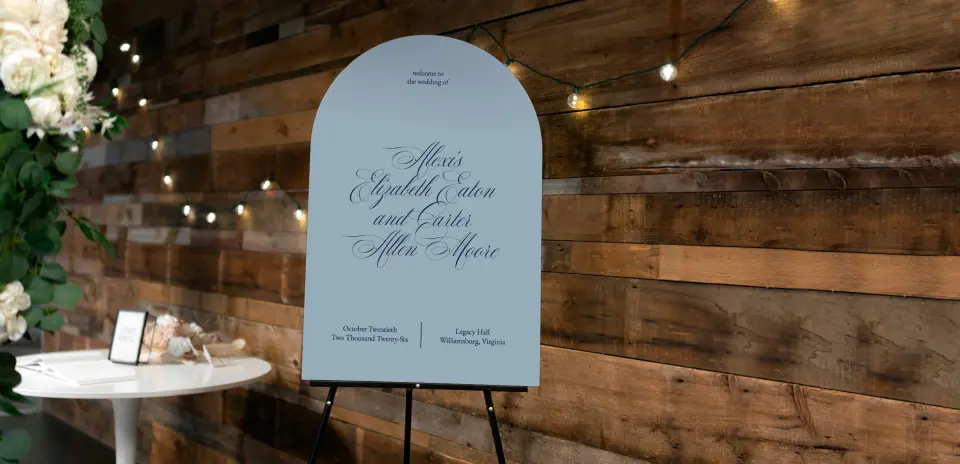 welcome to
the wedding of
Alexis
Elizabeth Eaton
and Carter
Allen Moore
October Twentieth
Two Thousand Twenty-Six
Legacy Hall
Williamsburg, Virginia